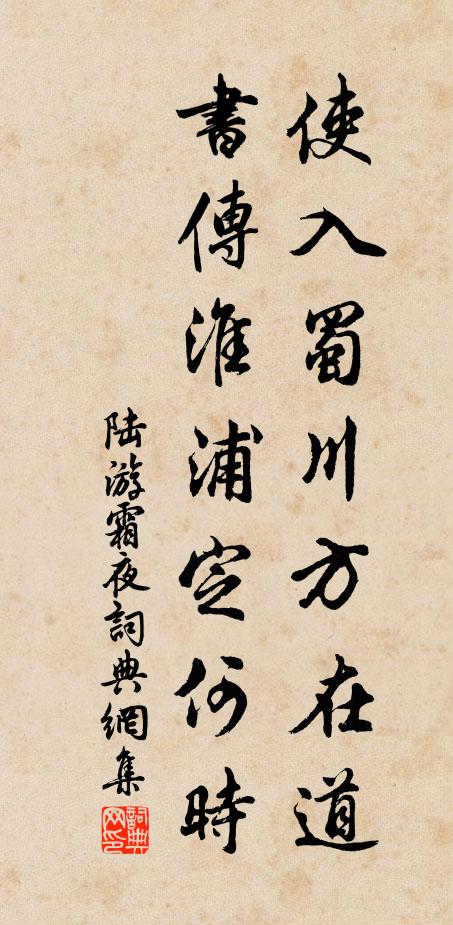 使入蜀川方在道
書傳淮浦定何時
陆游霜夜詞典網集
詞典网印